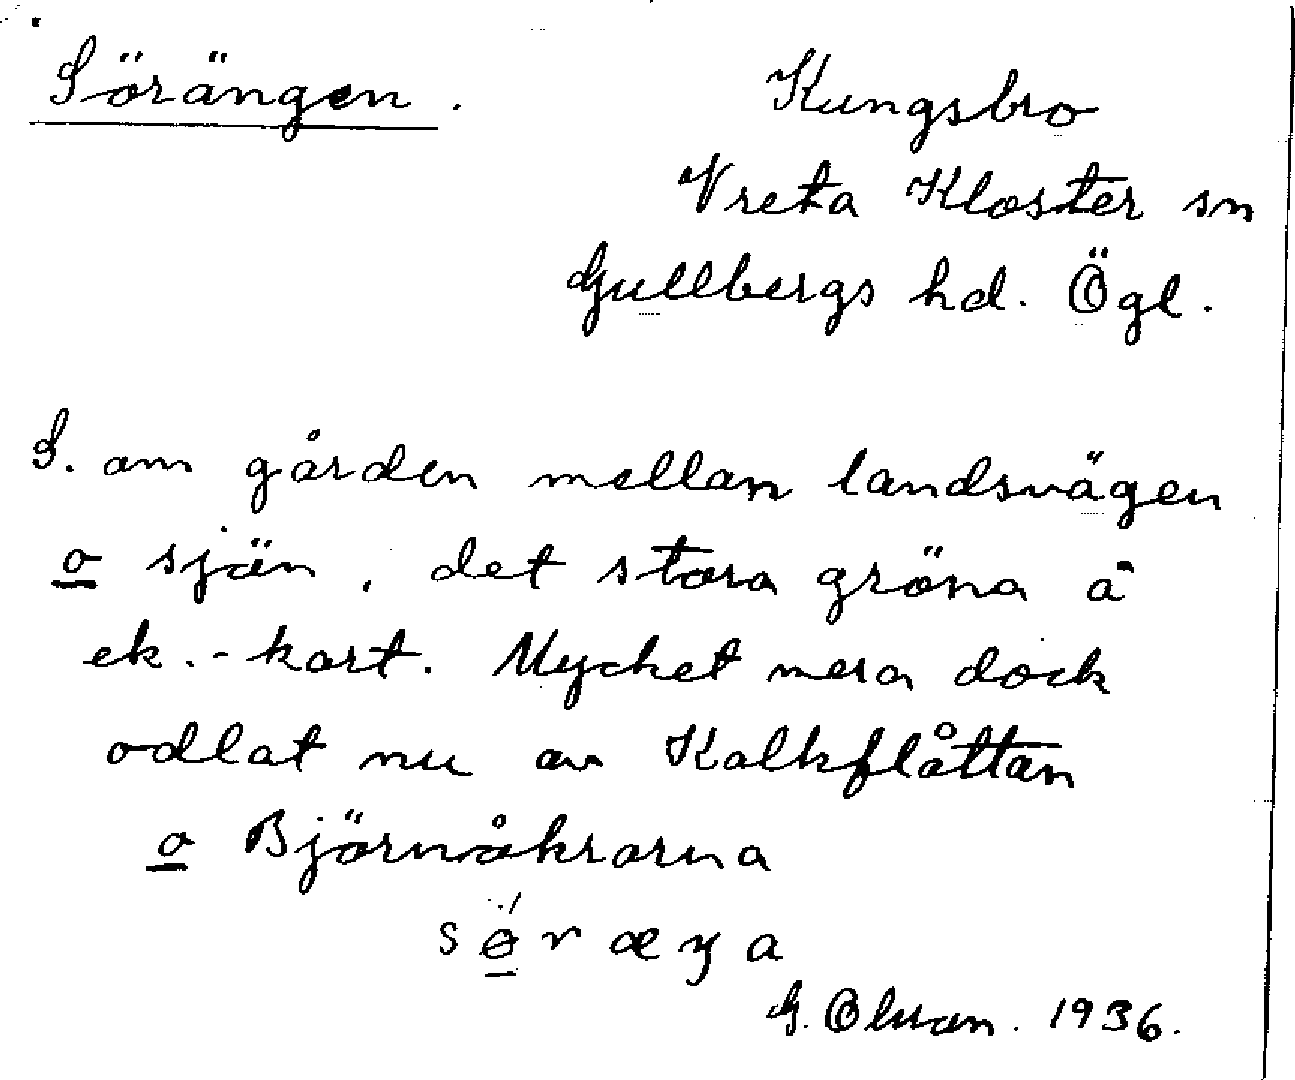 Sörängen.
Kungsbro
Vreta Kloster sn
Gullbergs hd. Ögl.
S. om gården mellan landsvägen
o sjön, det stora gröna å
ek.-kart. Mycket mera dock
odlat nu av Kalkflåttan
o Björnåkrarna
G. Olsson. 1936.